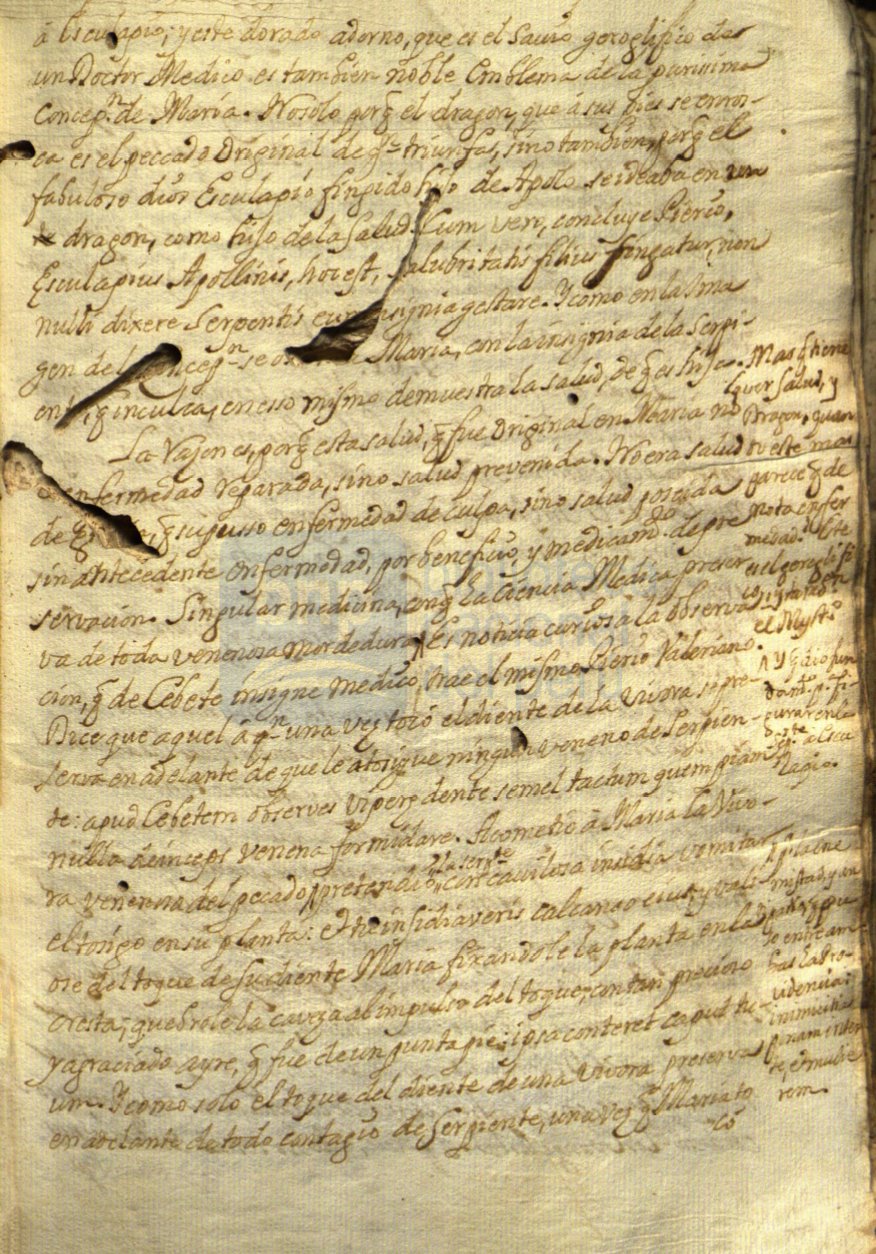 á Esculapio; y este dorado adorno, que es el Sauio geroglifico de
un Doctor Medico es tambien noble Emblema de la purissima
Concepⁿ. de María. No solo porq̃ el dragon, que á sus pies se enros-
ca es el peccado Original de qⁿ. triunfa, sino tambien, porq̃ el
fabuloso dios Esculapio fingido hijo de Apolo se ideaba en un
dragon, como hijo de la salud. Cum vero, concluye Pierio,
Esculapius Apollinis, hoc est, salubritatis filius fingatur, non
nulli dixere Serpentis eum insignia gestare. Y como en la Ima
gen de la Concepⁿ. se María, con la insignia de la Serpi-
ente, q̃ inculca, en esso mismo demuestra la salud, de q̃ es hija.
La Razon es, porq̃ esta salud, q̃ fue Original en María no
enfermedad reparada, sino salud prevenida. No era salud
de q̃ supusso enfermedad de culpa, sino salud posseida
sin antecedente enfermedad, por beneficio y medicamᵗᵒ. de pre
servacion. Singular medicina, con q̃ la Ciencia Medica preser
va de toda venenosa mordedura. Es noticia curiosa la observa
cion, q̃ de Cebete insigne medico, trae el mismo Pierio Valeriano.
Dice que aquel á qⁿ. una vez tocó el diente de la vivora se pre-
serva en adelante de que le atosigue ningun veneno de Serpien-
te: apud Cebetem observes viperę dente semel tactum quempiam
nulla deinceps venena formidare. Acometió á María la Vivo-
ra venenosa del pecado, pretendió la serpᵗᵉ con cavilosa insidia vomitar
el tosigo en su planta: et tu insidiaveris calcaneo eius; y vali-
ose del toque de su diente María fixandole la planta en la
cresta; quebrole la caveza al impulso del toque, con tan precioso
y agraciado ayre, q̃ fue de un puntapie: ipsa conteret caput tu-
um. Y como solo el toque del diente de una vivora preserva
en adelante de todo contagio de Serpiente, una vez q̃ María to
có
Mas q̃ tiene
q̃ ver Salud, y
Dragon, quan
do este mas
parece q̃ de
nota enfer
medad. Este
es el geroglifi
co,
el Mystᵒ.
Y q̃ dio fun
damᵗᵒ. pᵃ. fi-
gurar en la
Serpᵗᵉ. a Escu
lapio.
enemistad y un
q̃ pu
so entre am
bas la Pro-
videncia:
inimicitias
ponam inter
te, et mulie
rem.